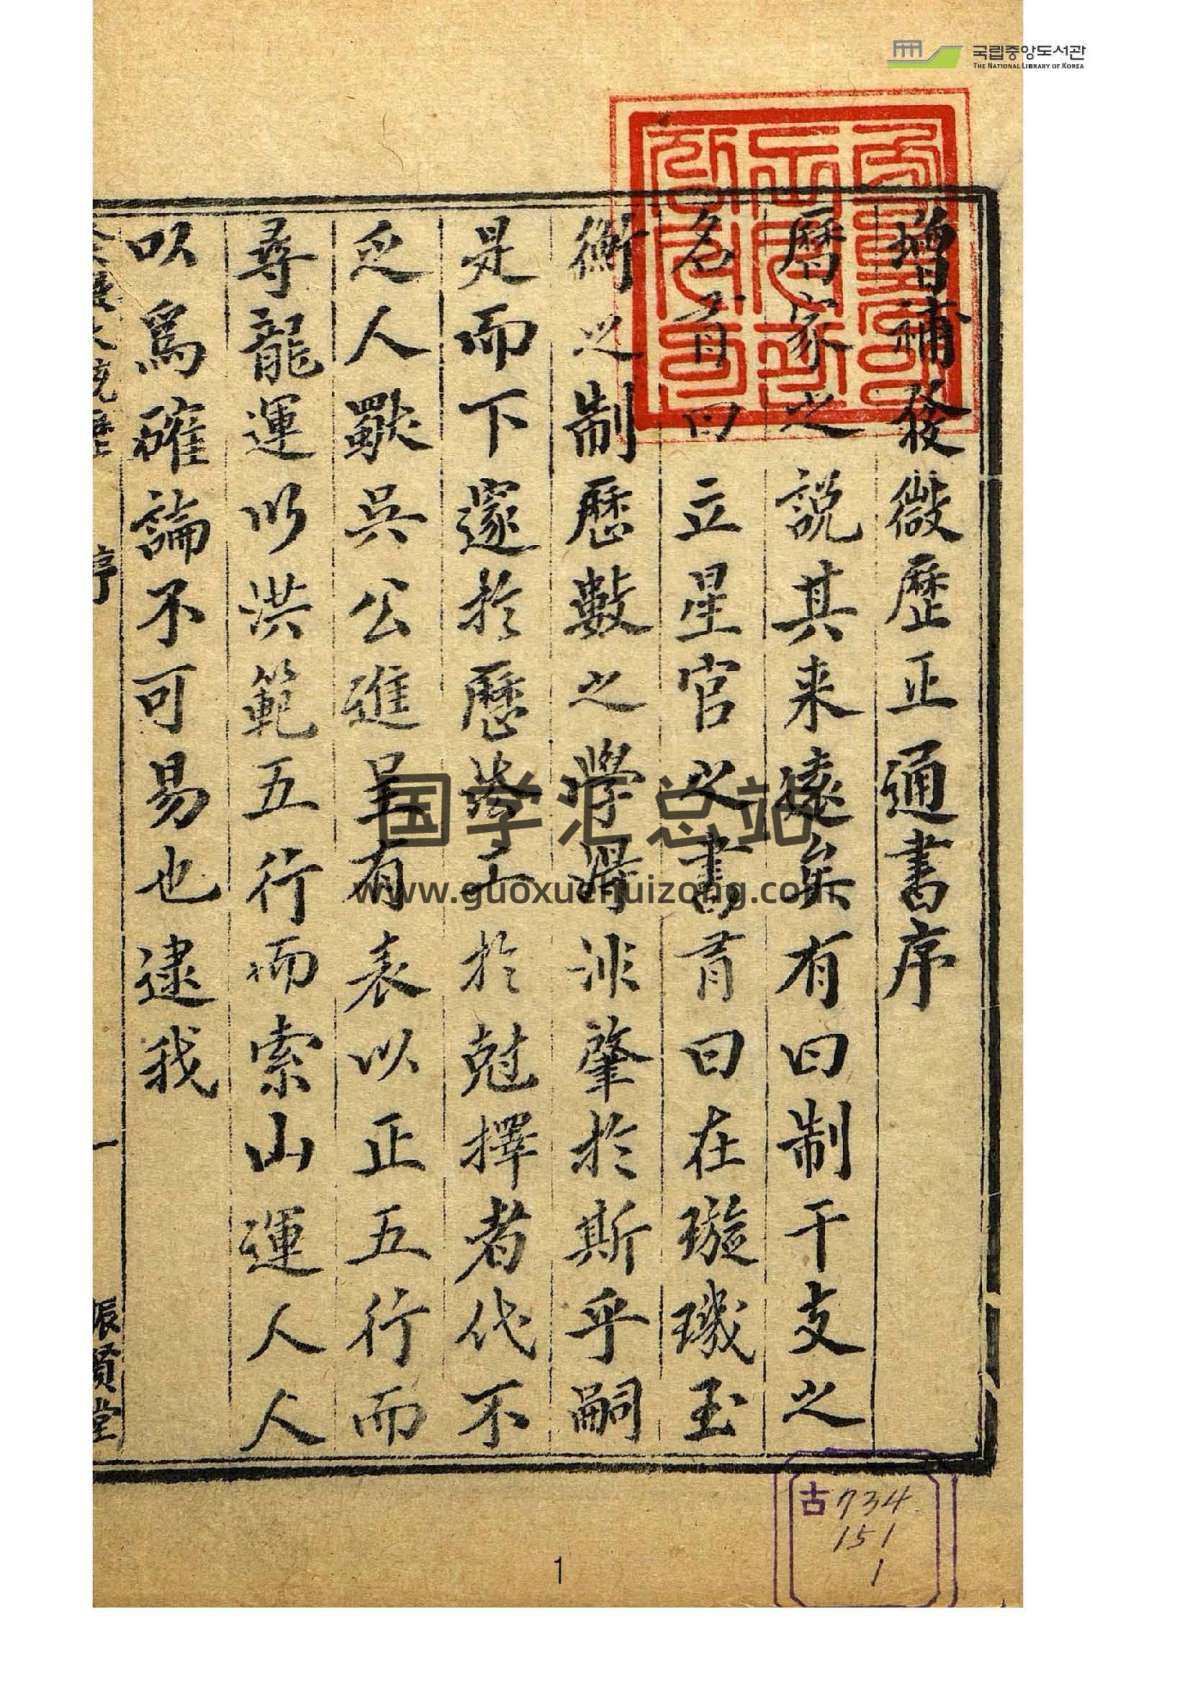 국립중앙도서관
THE NATIONAL LIBRARY OF KOREA
增補發微歷正通書序
曆家之說其来遠矣有曰制干支之
名首曰立星官之書肯曰在璇璣玉
衡之制歷數之學得非肇於斯乎嗣
是而下邃於歷者工於尅擇者代不
乏人歟吳公進呈有表以正五行而
尋龍運以洪範五行而索山運人人
以爲確論不可易也逮我
序
一
振賢堂
国学汇总站
www.guoxuehuizong.com
古734
151
1
1